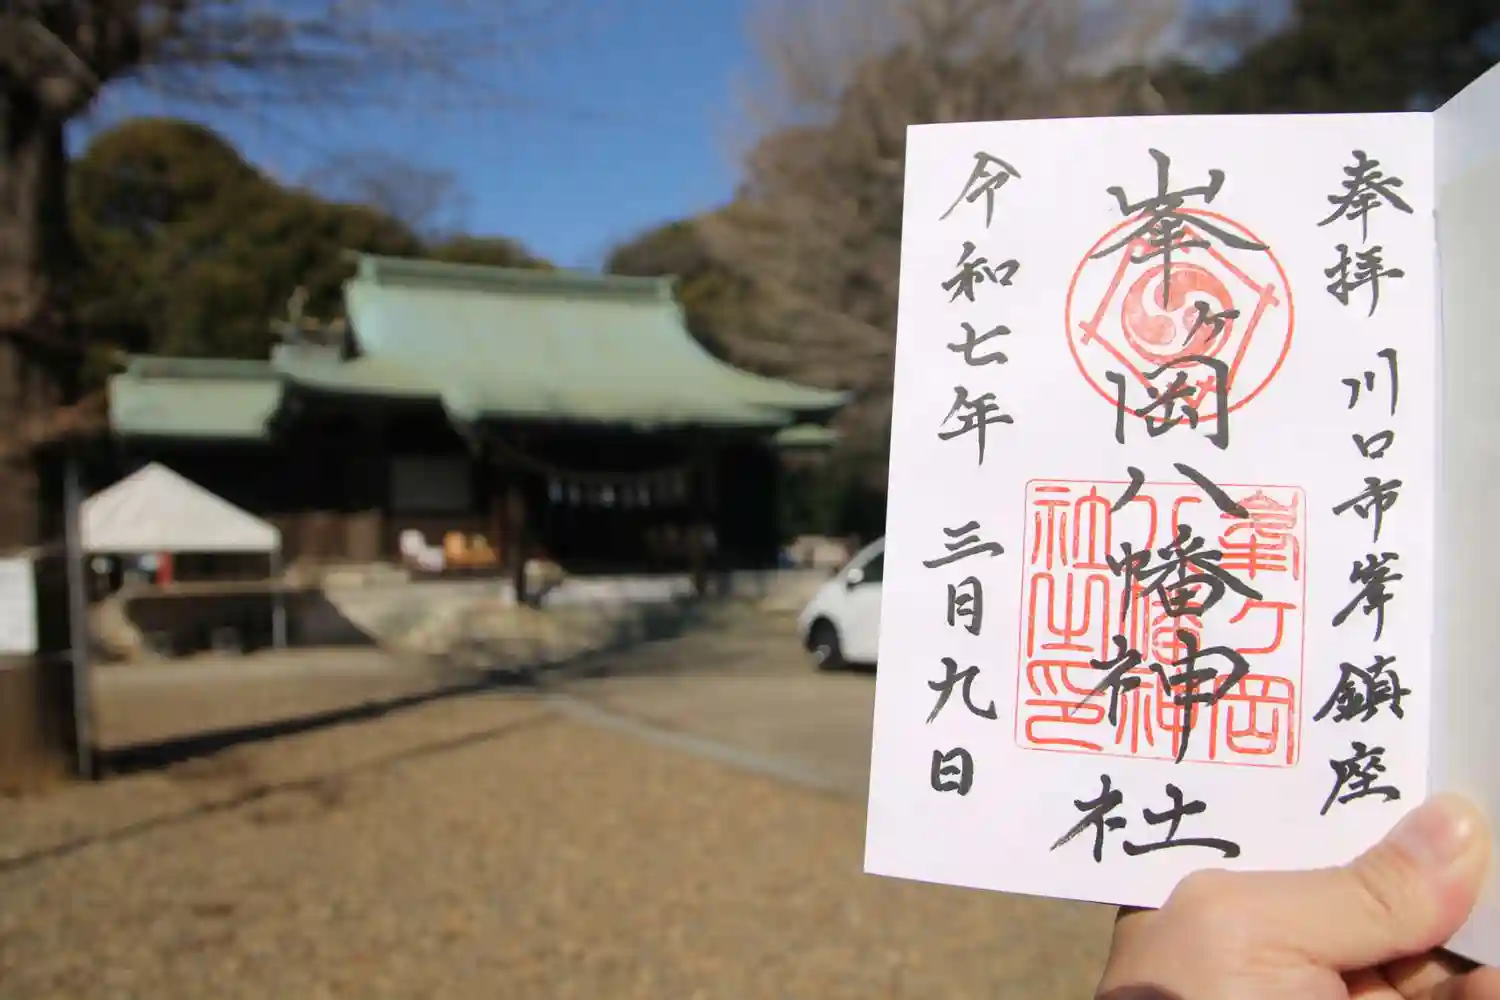 奉拝 川口市峯鎮座
峯ヶ岡八幡神社
峯ヶ岡
八幡神
社之印
令和七年 三月九日